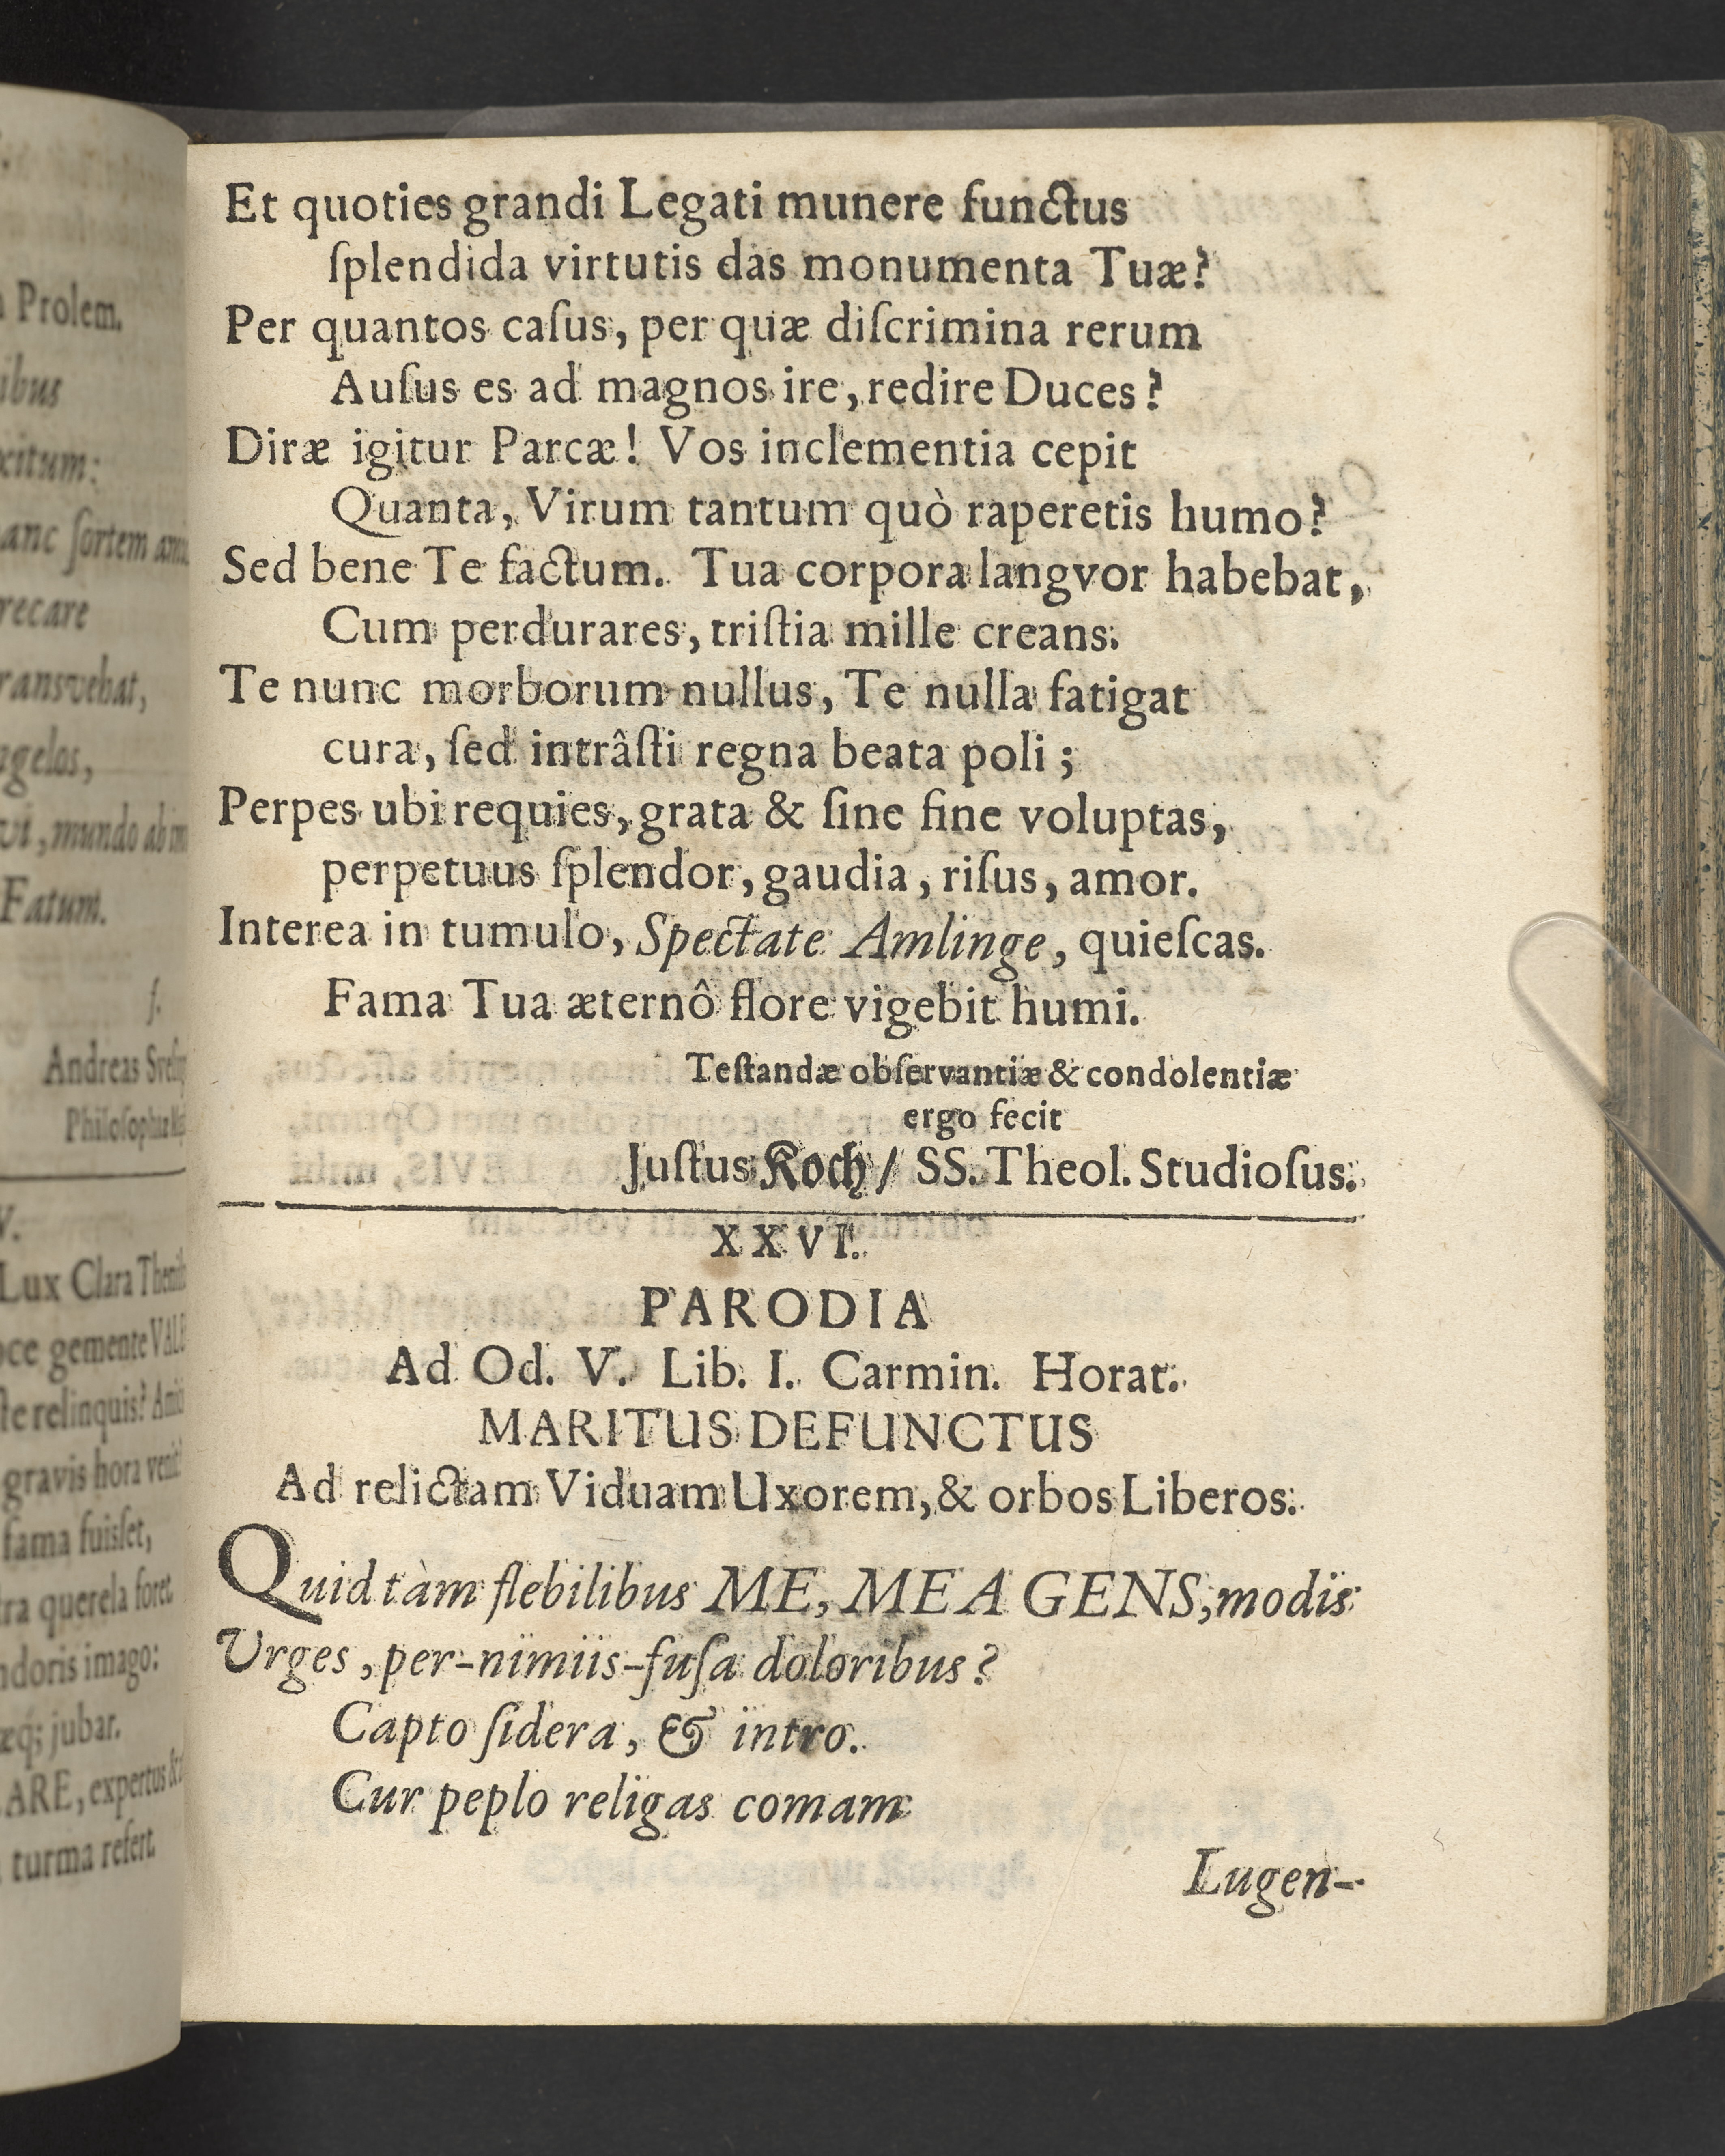 Prolem.
ibus
xitum:
anc ſortem
recare
ransvehat,
ngelos,
vi, mundo
Fatum.
ſ.
Andreas
V.
Lux Clara
oce gemente
ſte relinquis?
gravis hora
fama fuisſet,
tra querela foret
ndoris imago:
æq; jubar.
ARE, expertus
turma refert.
Et quoties grandi Legati munere functus
ſplendida virtutis das monumenta Tuæ?
Per quantos caſus, per quæ diſcrimina rerum
Auſus es ad magnos ire, redire Duces?
Diræ igitur Parcæ! Vos inclementia cepit
Quanta, Virum tantum quò raperetis humo?
Sed bene Te factum. Tua corpora langvor habebat,
Cum perdurares, triſtia mille creans.
Te nunc morborum nullus, Te nulla fatigat
cura, ſed intrâſti regna beata poli;
Perpes ubi requies, grata & ſine fine voluptas,
perpetuus ſplendor, gaudia, riſus, amor.
Interea in tumulo, Spectate Amlinge, quieſcas.
Fama Tua æternô flore vigebit humi.
Teſtandæ obſervantiæ & condolentiæ
ergo fecit
Juſtus Koch / SS. Theol. Studioſus.
XXVI.
PARODIA
Ad Od. V. Lib. I. Carmin. Horat.
MARITUS DEFUNCTUS
Ad relictam Viduam Uxorem, & orbos Liberos.
Quid tàm flebilibus ME, MEA GENS, modis
Urges, per-nimiis-fuſa doloribus?
Capto ſidera, & intro.
Cur peplo religas comam
Lugen-